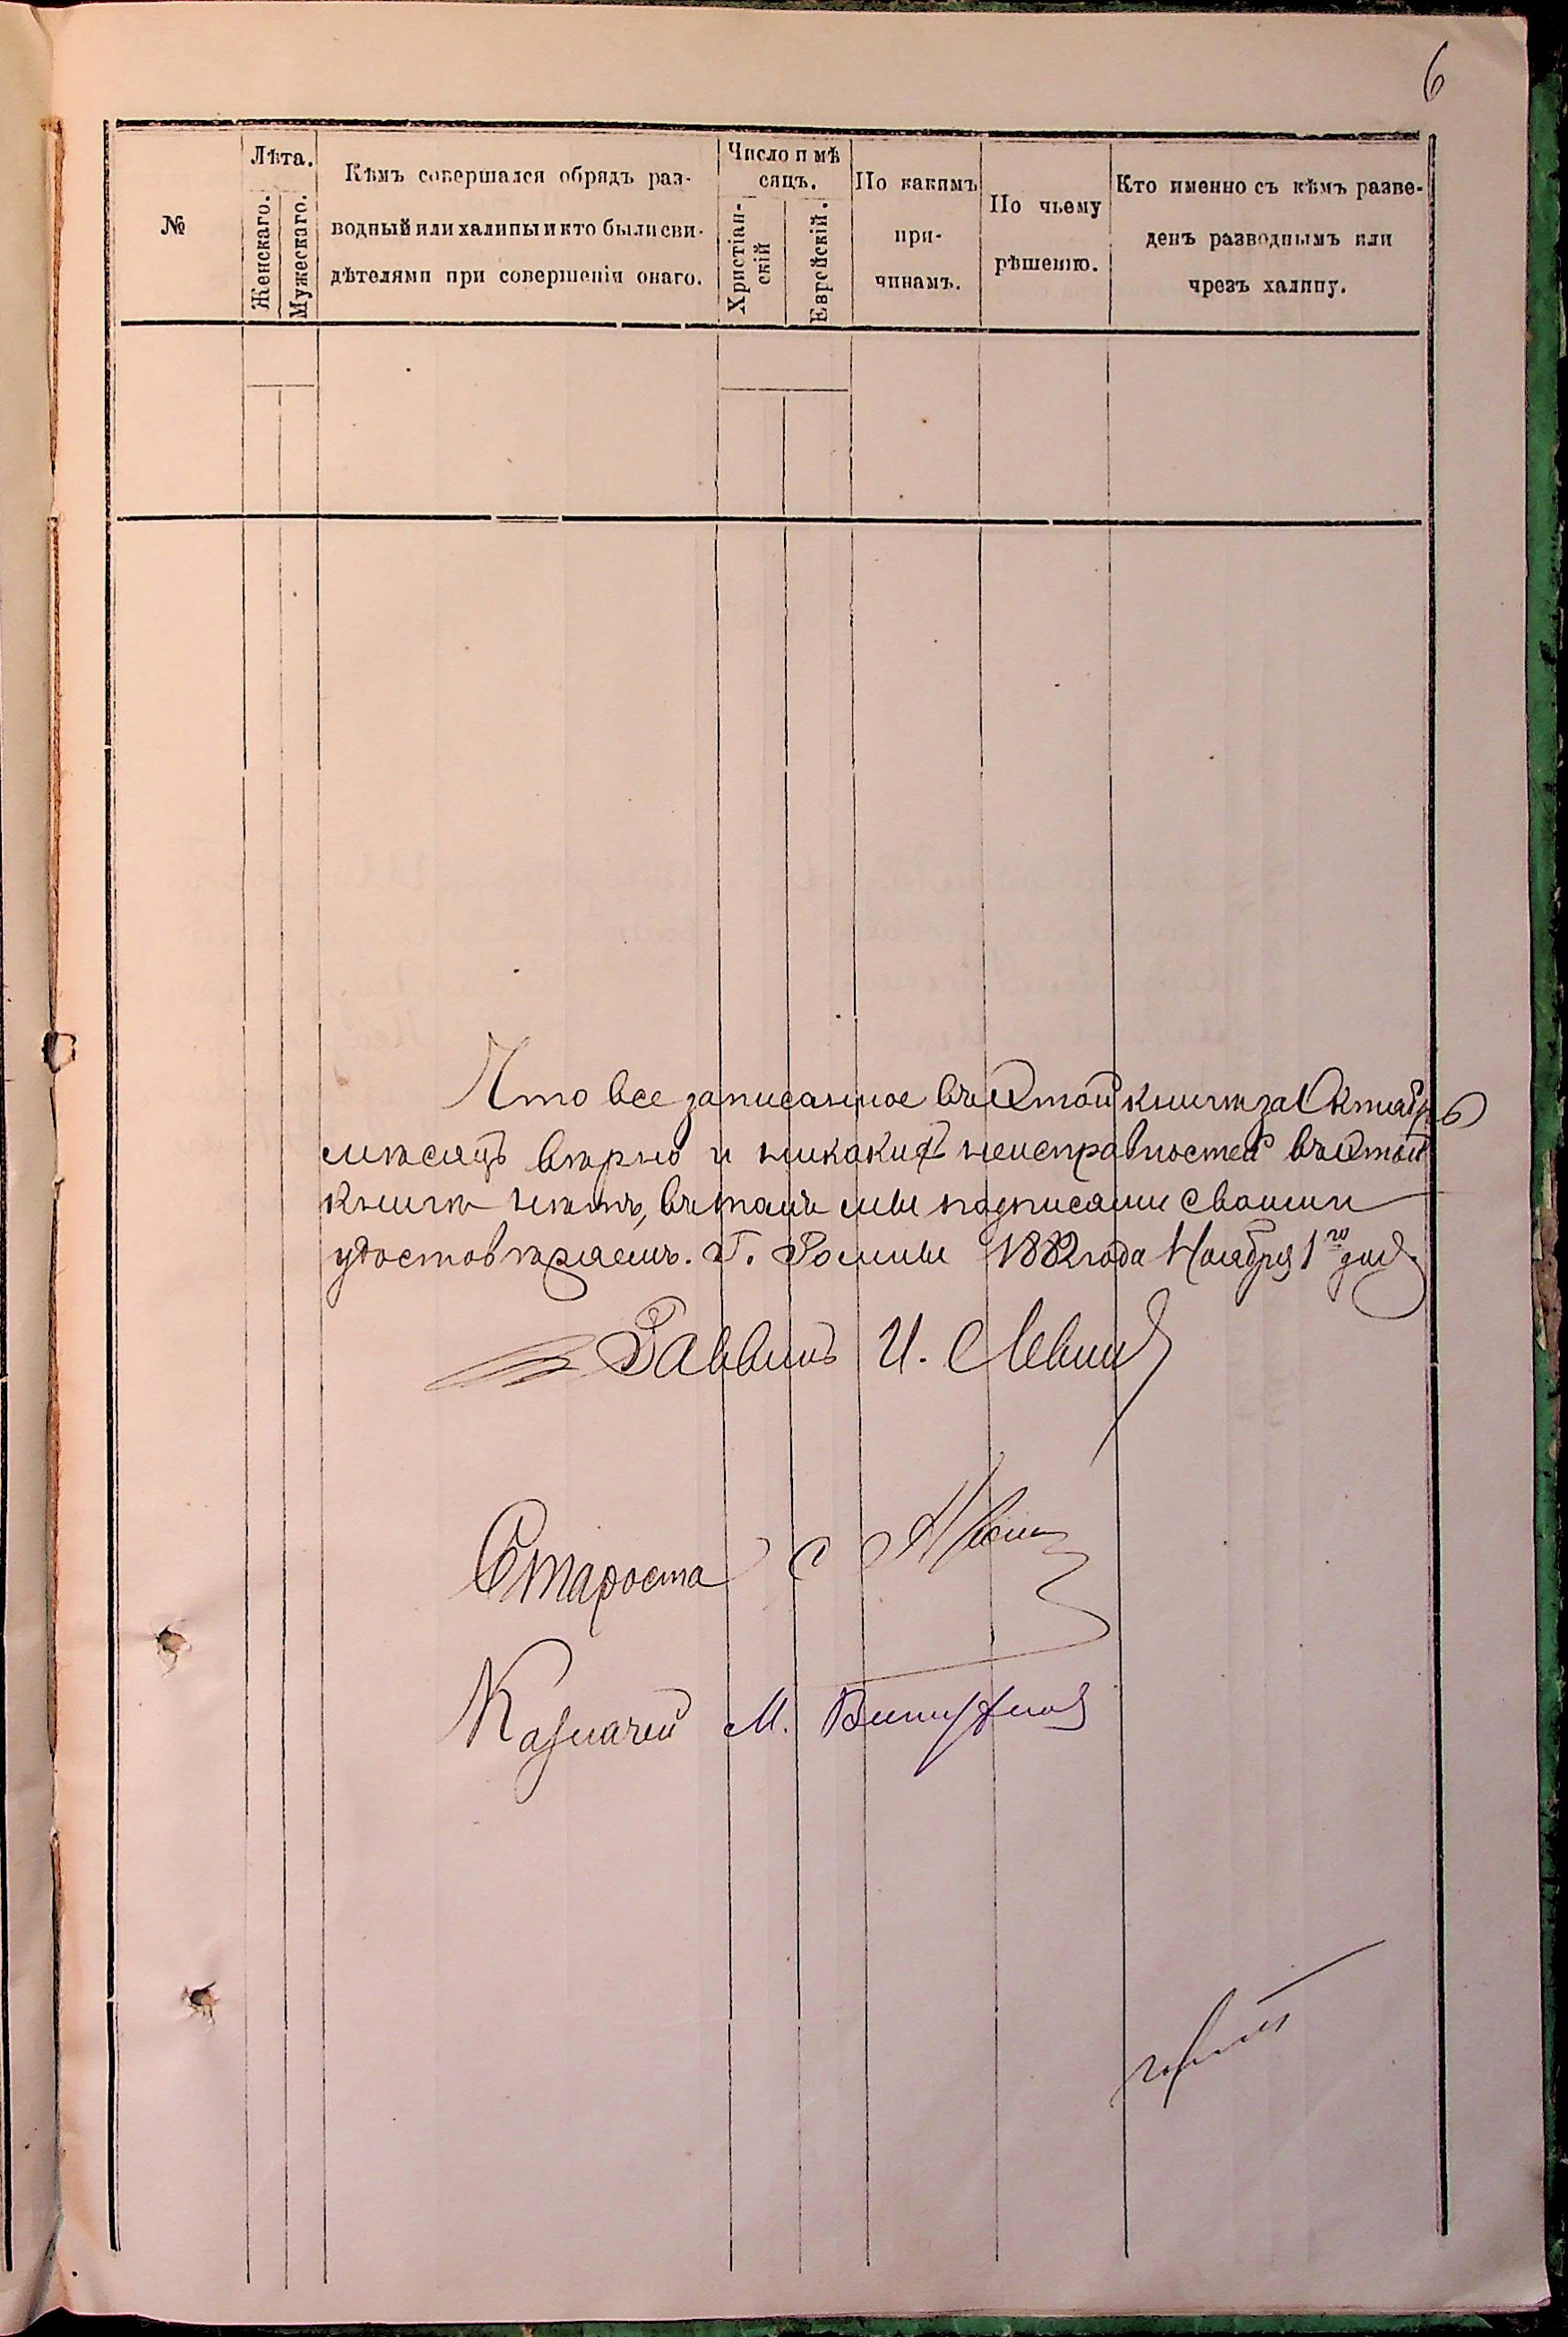 6
№
Лѣта.
Женскаго.
Мужескаго.
Кѣмъ совершался обрядъ раз-
водный или халицы и кто были сви-
дѣтелями при совершеніи онаго.
Число и мѣ
сяцъ.
Христіан-
скій
Еврейскій.
По какимъ
при-
чинамъ.
По чьему
рѣшенію.
Кто именно съ кѣмъ разве-
денъ разводнымъ или
чрезъ халицу.
Что все записанное въ этой книгѣ за Октябрь
мѣсяцъ вѣрно и никакихъ неисправностей въ этой
книгѣ нѣтъ, въ томъ мы подписами своими
удостовѣряемъ. Г. Ромны 1882 года Ноября 1го дня
Раввинъ И. Левинъ
Староста
Казначей М.